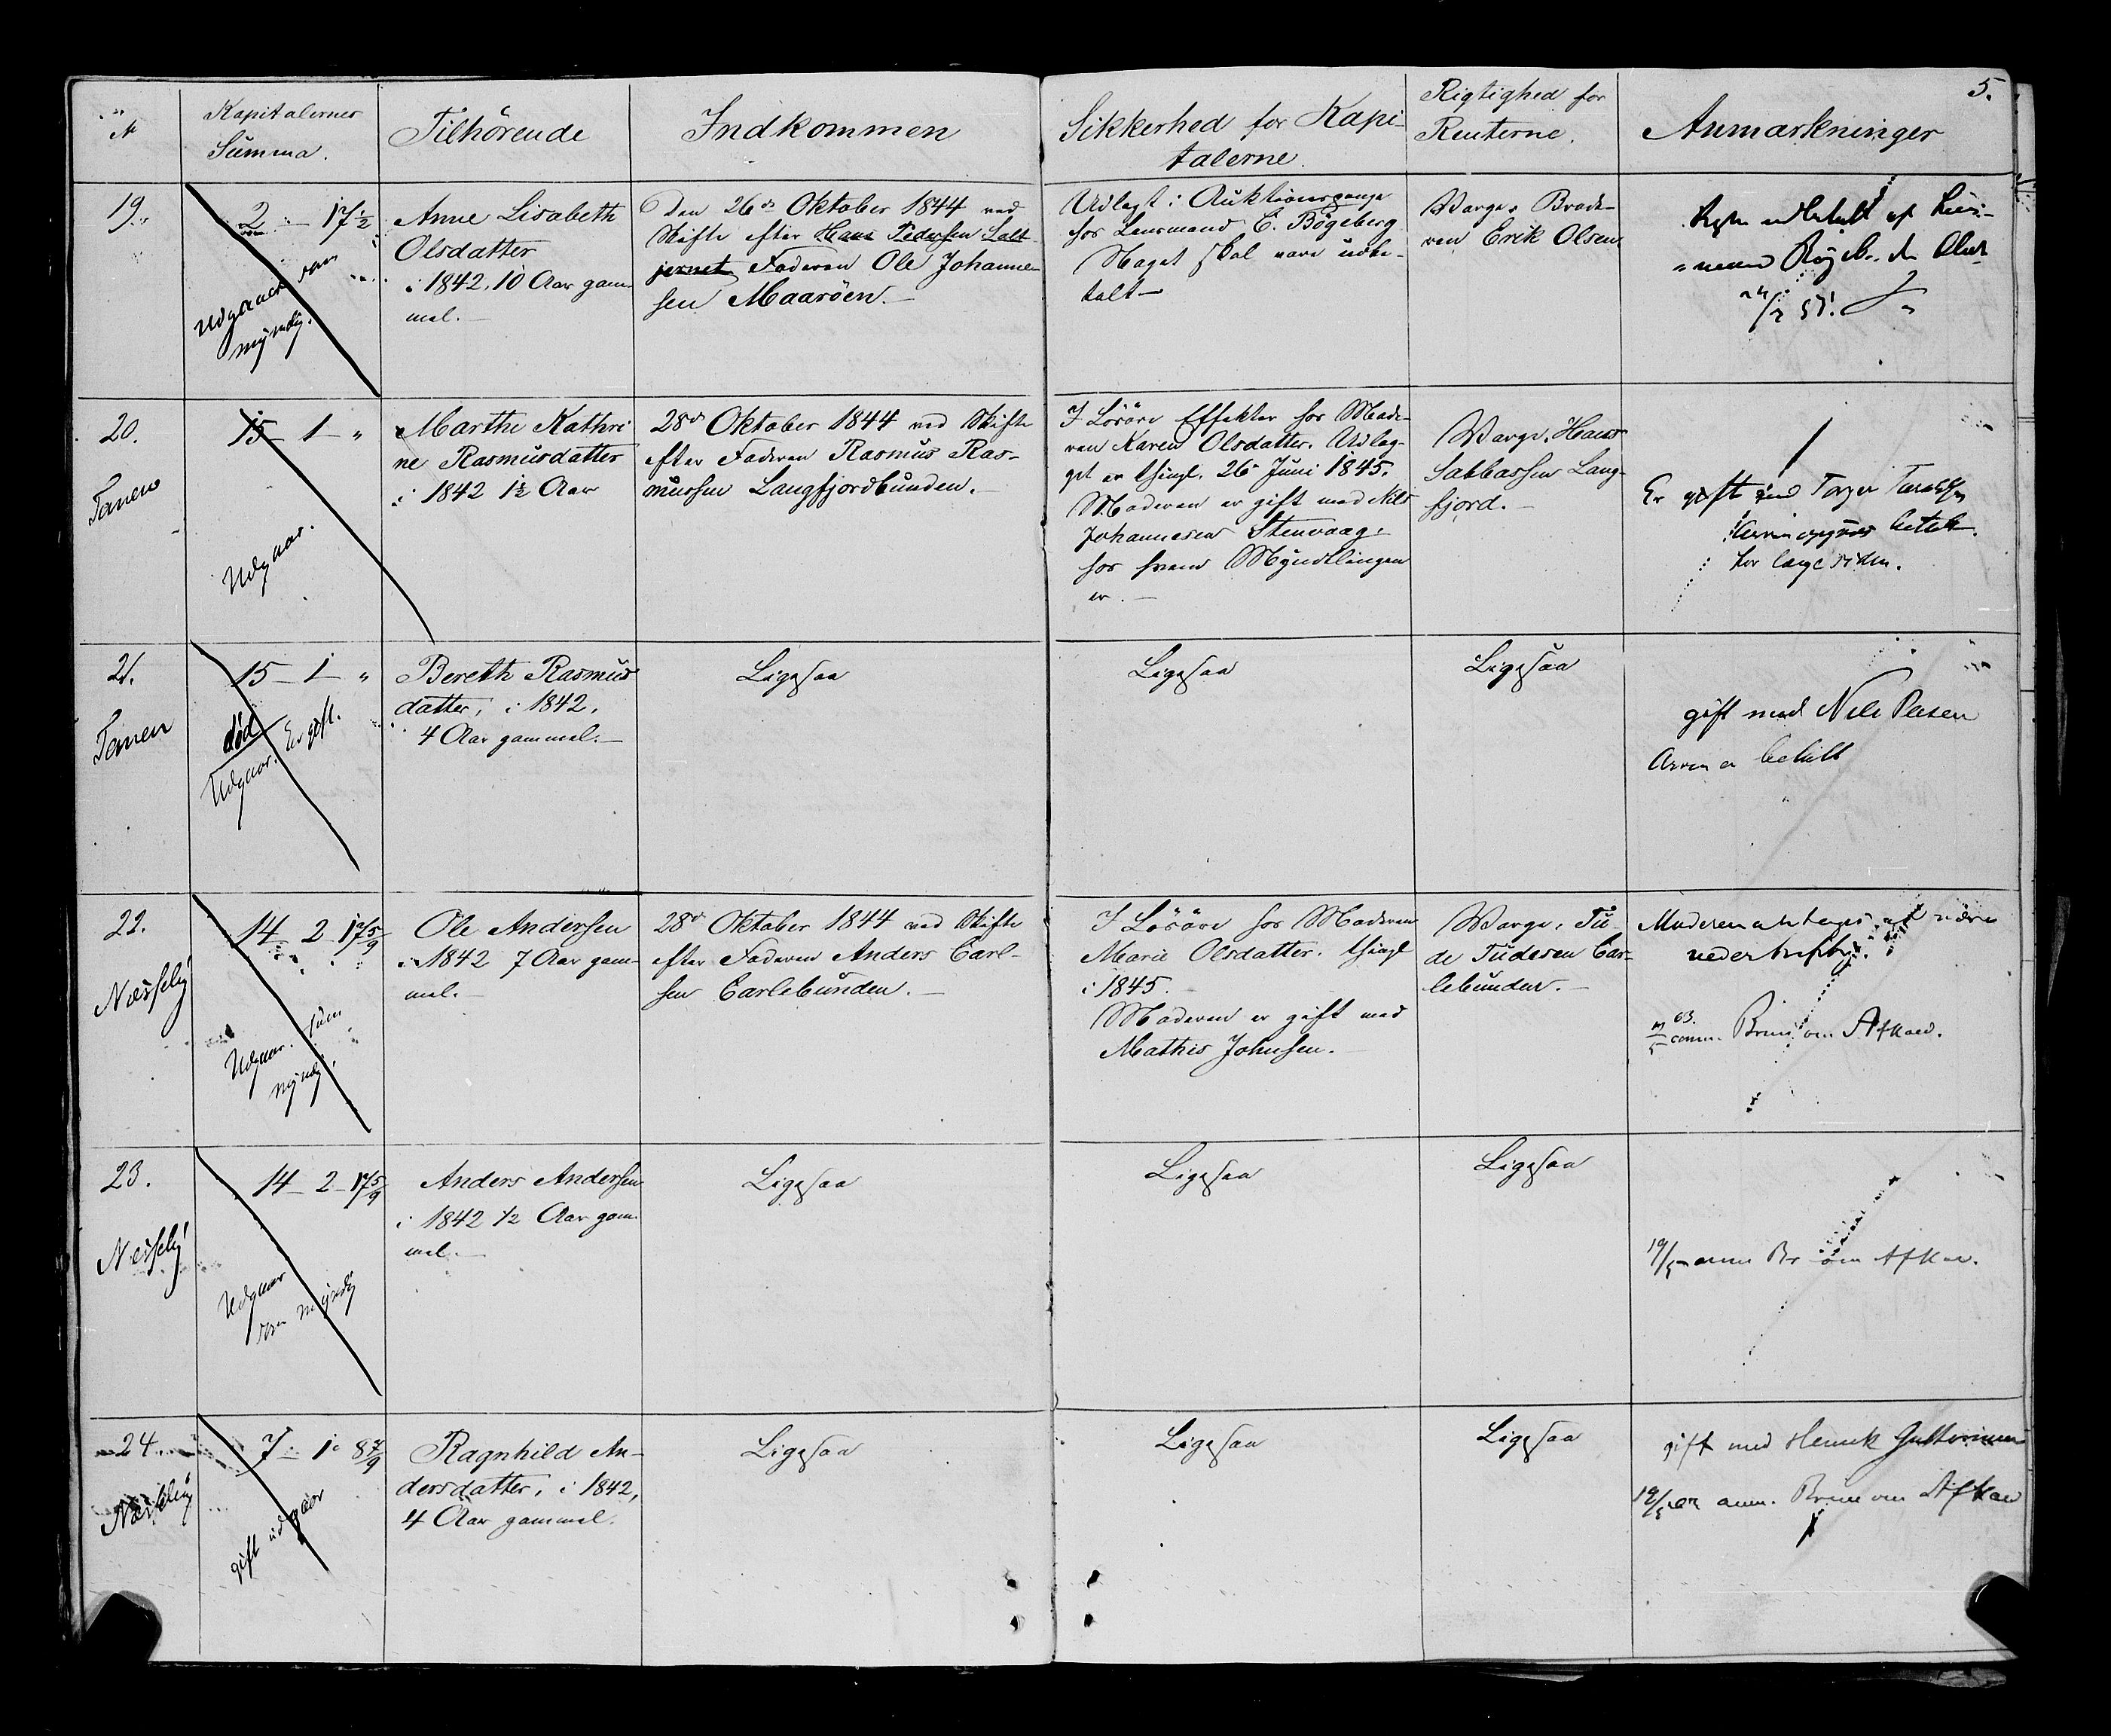 5.
№
Kapitalernes
Summa.
Tilhörende
Indkommen
Sikkerhed for Kapi-
talerne.
Rigtighed for
Renterne.
Anmærkninger
19.
2 - - 17½
Udgaaer som
myndig.
Anne Lisabeth
Olsdatter
i 1842, 10 Aar gam-
mel.
Den 26de Oktober 1844 ved
Skifte efter Hans Pedersen Salt-
jernet Faderen Ole Johanne-
sen Maaröen.
Udlagt i Auktionspenge
hos Lensmand C. Bögeberg
Noget skal være udbe-
talt
Værge, Brode-
ren Erik Olsen
udbetalt af Lens-
20.
Tanen
15 - 1 - "
Udgaar.
Marthe Kathri-
ne Rasmusdatter
i 1842 1½ Aar
28de Oktober 1844 ved Skifte
efter Faderen Rasmus Ras-
mussen Langfjordbunden.
I Lösöre Effekter hos Mode-
ren Karen Olsdatter. Udlæg-
get er thingl. 26 Juni 1845.
Moderen er gift med Nils
Johannesen Stenvaag,
hos hvem Myndlingen
er.
Værge, Hans
Sabbassen Lang-
fjord.
Er gift med
betalt
for længe siden.
21.
Tanen
15 - 1 - "
död
Er gift.
Udgaar.
Bereth Rasmus
datter, i 1842,
4 Aar gammel.
Ligesaa
Ligesaa
Ligesaa
gift med Nils Persen
Arven er betalt
22.
Nesseby
14 - 2 - 17 5/9
Udgaar som
myndig.
Ole Andersen
i 1842 7 Aar gam-
mel.
28de Oktober 1844 ved Skifte
efter Faderen Anders Carl-
sen Carlebunden.
I Lösöre hos Moderen
Marie Olsdatter. thingl
i 1845.
Moderen er gift med
Mathis Johnsen.
Værge, Tu-
de Tudesen Car-
lebunden.
Moderen antages at være
vederhæftig.
63.
anm. Brun om Afkald.
23.
Nesseby
14 - 2 - 17 5/9
Udgaar
som myndig
Anders Andersen
i 1842 ½ Aar gam-
mel.
Ligesaa
Ligesaa
Ligesaa
19/5 anm Br om Afkal.
24.
Nesseby
7 - 1 - 8 7/9
gift udgaaer
Ragnhild An-
dersdatter, i 1842,
4 Aar gammel.
Ligesaa
Ligesaa
Ligesaa
gift med Henrik Guttormsen
19/5 anm. Brun om Afkald